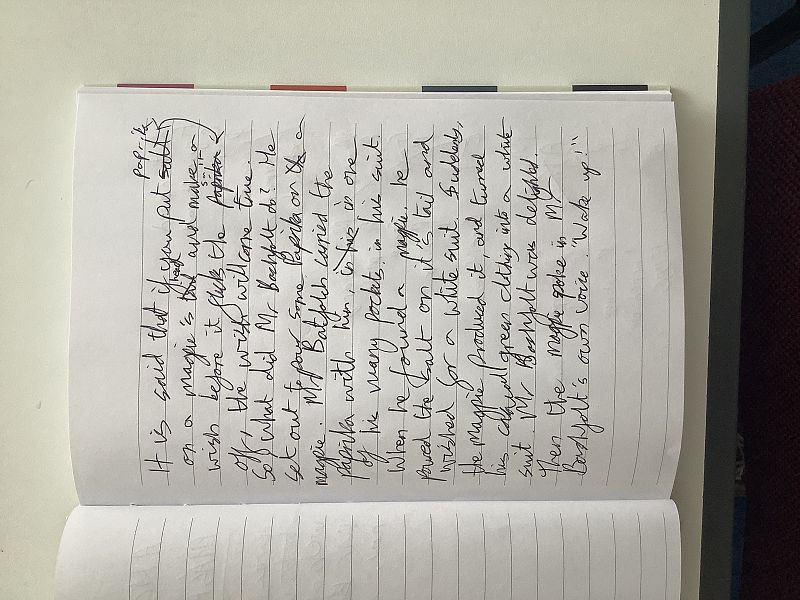 It is said that if you put salt paprika
on a magpie's tail head and make a
wish before it flicks the paprika salt
off, the wish will come true.
So what did Mr Bashfolt do? He
set out to pour some Paprika on the a
magpie. Mr carried the
Paprika with him, in his in one
of his many pockets in his suit.
When he found a magpie, he
poured the salt on it's tail and
wished for a white suit. Suddenly,
the magpie produced it, and turned
his green clothing into a white
suit. Mr Bashfolt was delighted.
Then the magpie spoke in Mr
Bashfolt's own voice. "Wake up!"